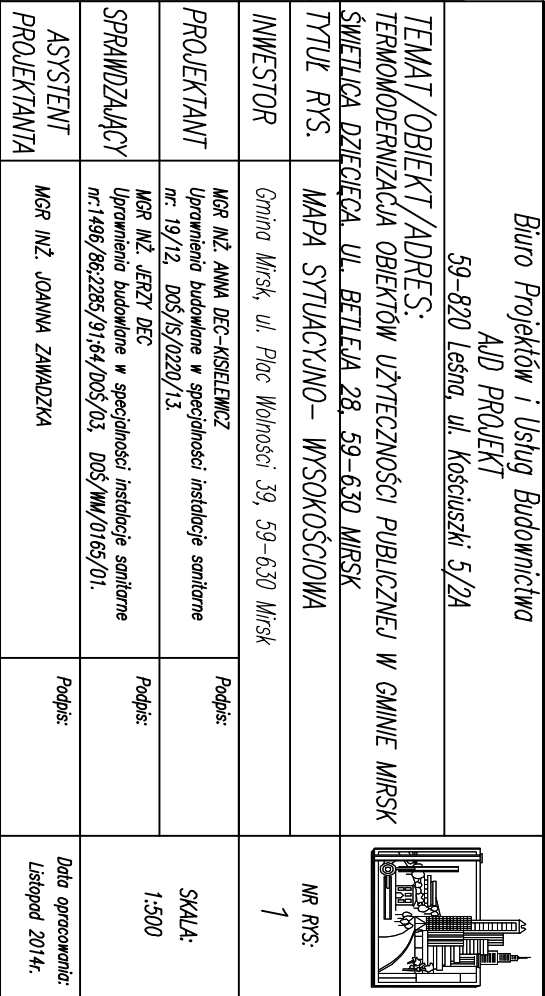 Biuro Projektów i Usług Budownictwa
AJD PROJEKT
59-820 Leśna, ul. Kościuszki 5/2A
TEMAT/OBIEKT/ADRES:
TERMOMODERNIZACJA OBIEKTÓW UŻYTECZNOŚCI PUBLICZNEJ W GMINIE MIRSK
ŚWIETLICA DZIECIĘCA. UL. BETLEJA 28, 59-630 MIRSK
TYTUŁ RYS.
MAPA SYTUACYJNO- WYSOKOŚCIOWA
NR RYS:
1
INWESTOR
Gmina Mirsk, ul. Plac Wolności 39, 59-630 Mirsk
PROJEKTANT
MGR INŻ. ANNA DEC-KISIELEWICZ
Uprawnienia budowlane w specjalności instalacje sanitarne
nr: 19/12, DOŚ/IS/0220/13.
Podpis:
SKALA:
1:500
SPRAWDZAJĄCY
MGR INŻ. JERZY DEC
Uprawnienia budowlane w specjalności instalacje sanitarne
nr:1496/86;2285/91;64/DOŚ/03, DOŚ/WM/0165/01.
Podpis:
ASYSTENT
PROJEKTANTA
MGR INŻ. JOANNA ZAWADZKA
Podpis:
Data opracowania:
Listopad 2014r.